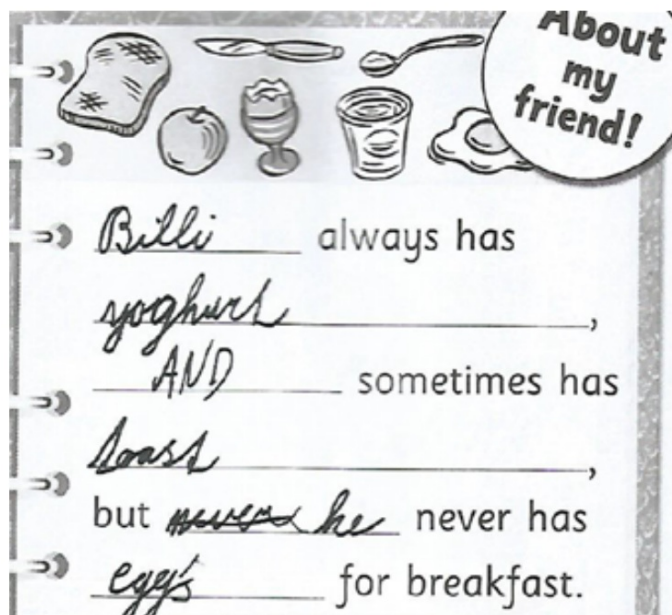 About
my
friend!
Billi always has
yoghurt,
AND sometimes has
toast,
but never he never has
egg's for breakfast.